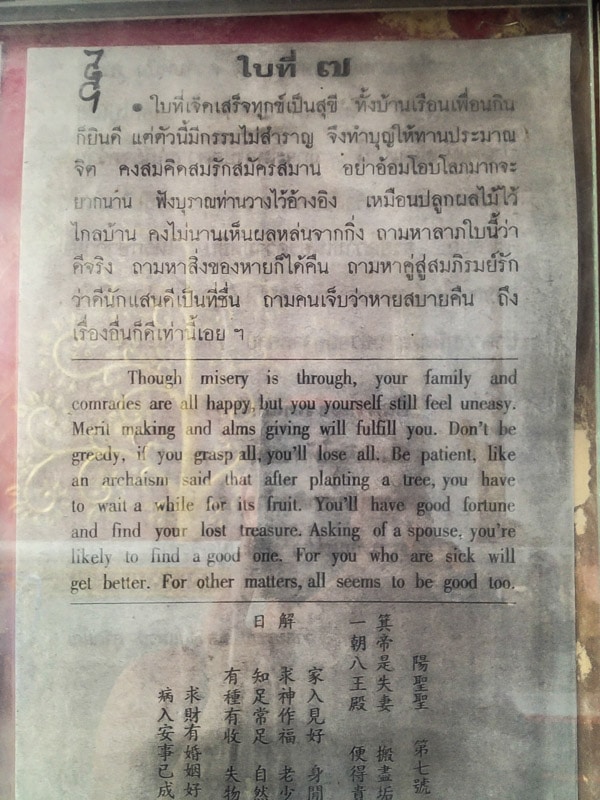 ใบที่ ๗
● ใบที่เจ็ดเสร็จทุกข์เป็นสุขี ทั้งบ้านเรือนเพื่อนกิน
ก็ยินดี แต่ตัวนี้มีกรรมไม่สำราญ จึงทำบุญให้ทานประมาณ
จิต คงสมคิดสมรักสมัครสมาน อย่าอ้อมโอบโลภมากจะ
ยากนาน ฟังบุราณท่านวางไว้อ้างอิง เหมือนปลูกผลไม้ไว้
ไกลบ้าน คงไม่นานเห็นผลหล่นจากกิ่ง ถามหาลาภใบนี้ว่า
ดีจริง ถามหาสิ่งของหายก็ได้คืน ถามหาคู่สู่สมภิรมย์รัก
ว่าดีนักแสนดีเป็นที่ชื่น ถามคนเจ็บว่าหายสบายคืน ถึง
เรื่องอื่นก็ดีเท่านี้เอย ฯ
Though misery is through, your family and
comrades are all happy, but you yourself still feel uneasy.
Merit making and alms giving will fulfill you. Don't be
greedy, if you grasp all, you'll lose all. Be patient, like
an archaism said that after planting a tree, you have
to wait a while for its fruit. You'll have good fortune
and find your lost treasure. Asking of a spouse, you're
likely to find a good one. For you who are sick will
get better. For other matters, all seems to be good too.
陽聖聖 第七號
箕帝是失妻 搬盡垢
一朝八王殿 便得貴
解
日
家入見好 身閒
求神作福 老少
知足常足 自然
有種有收 失物
求財有婚姻好
病入安事已成